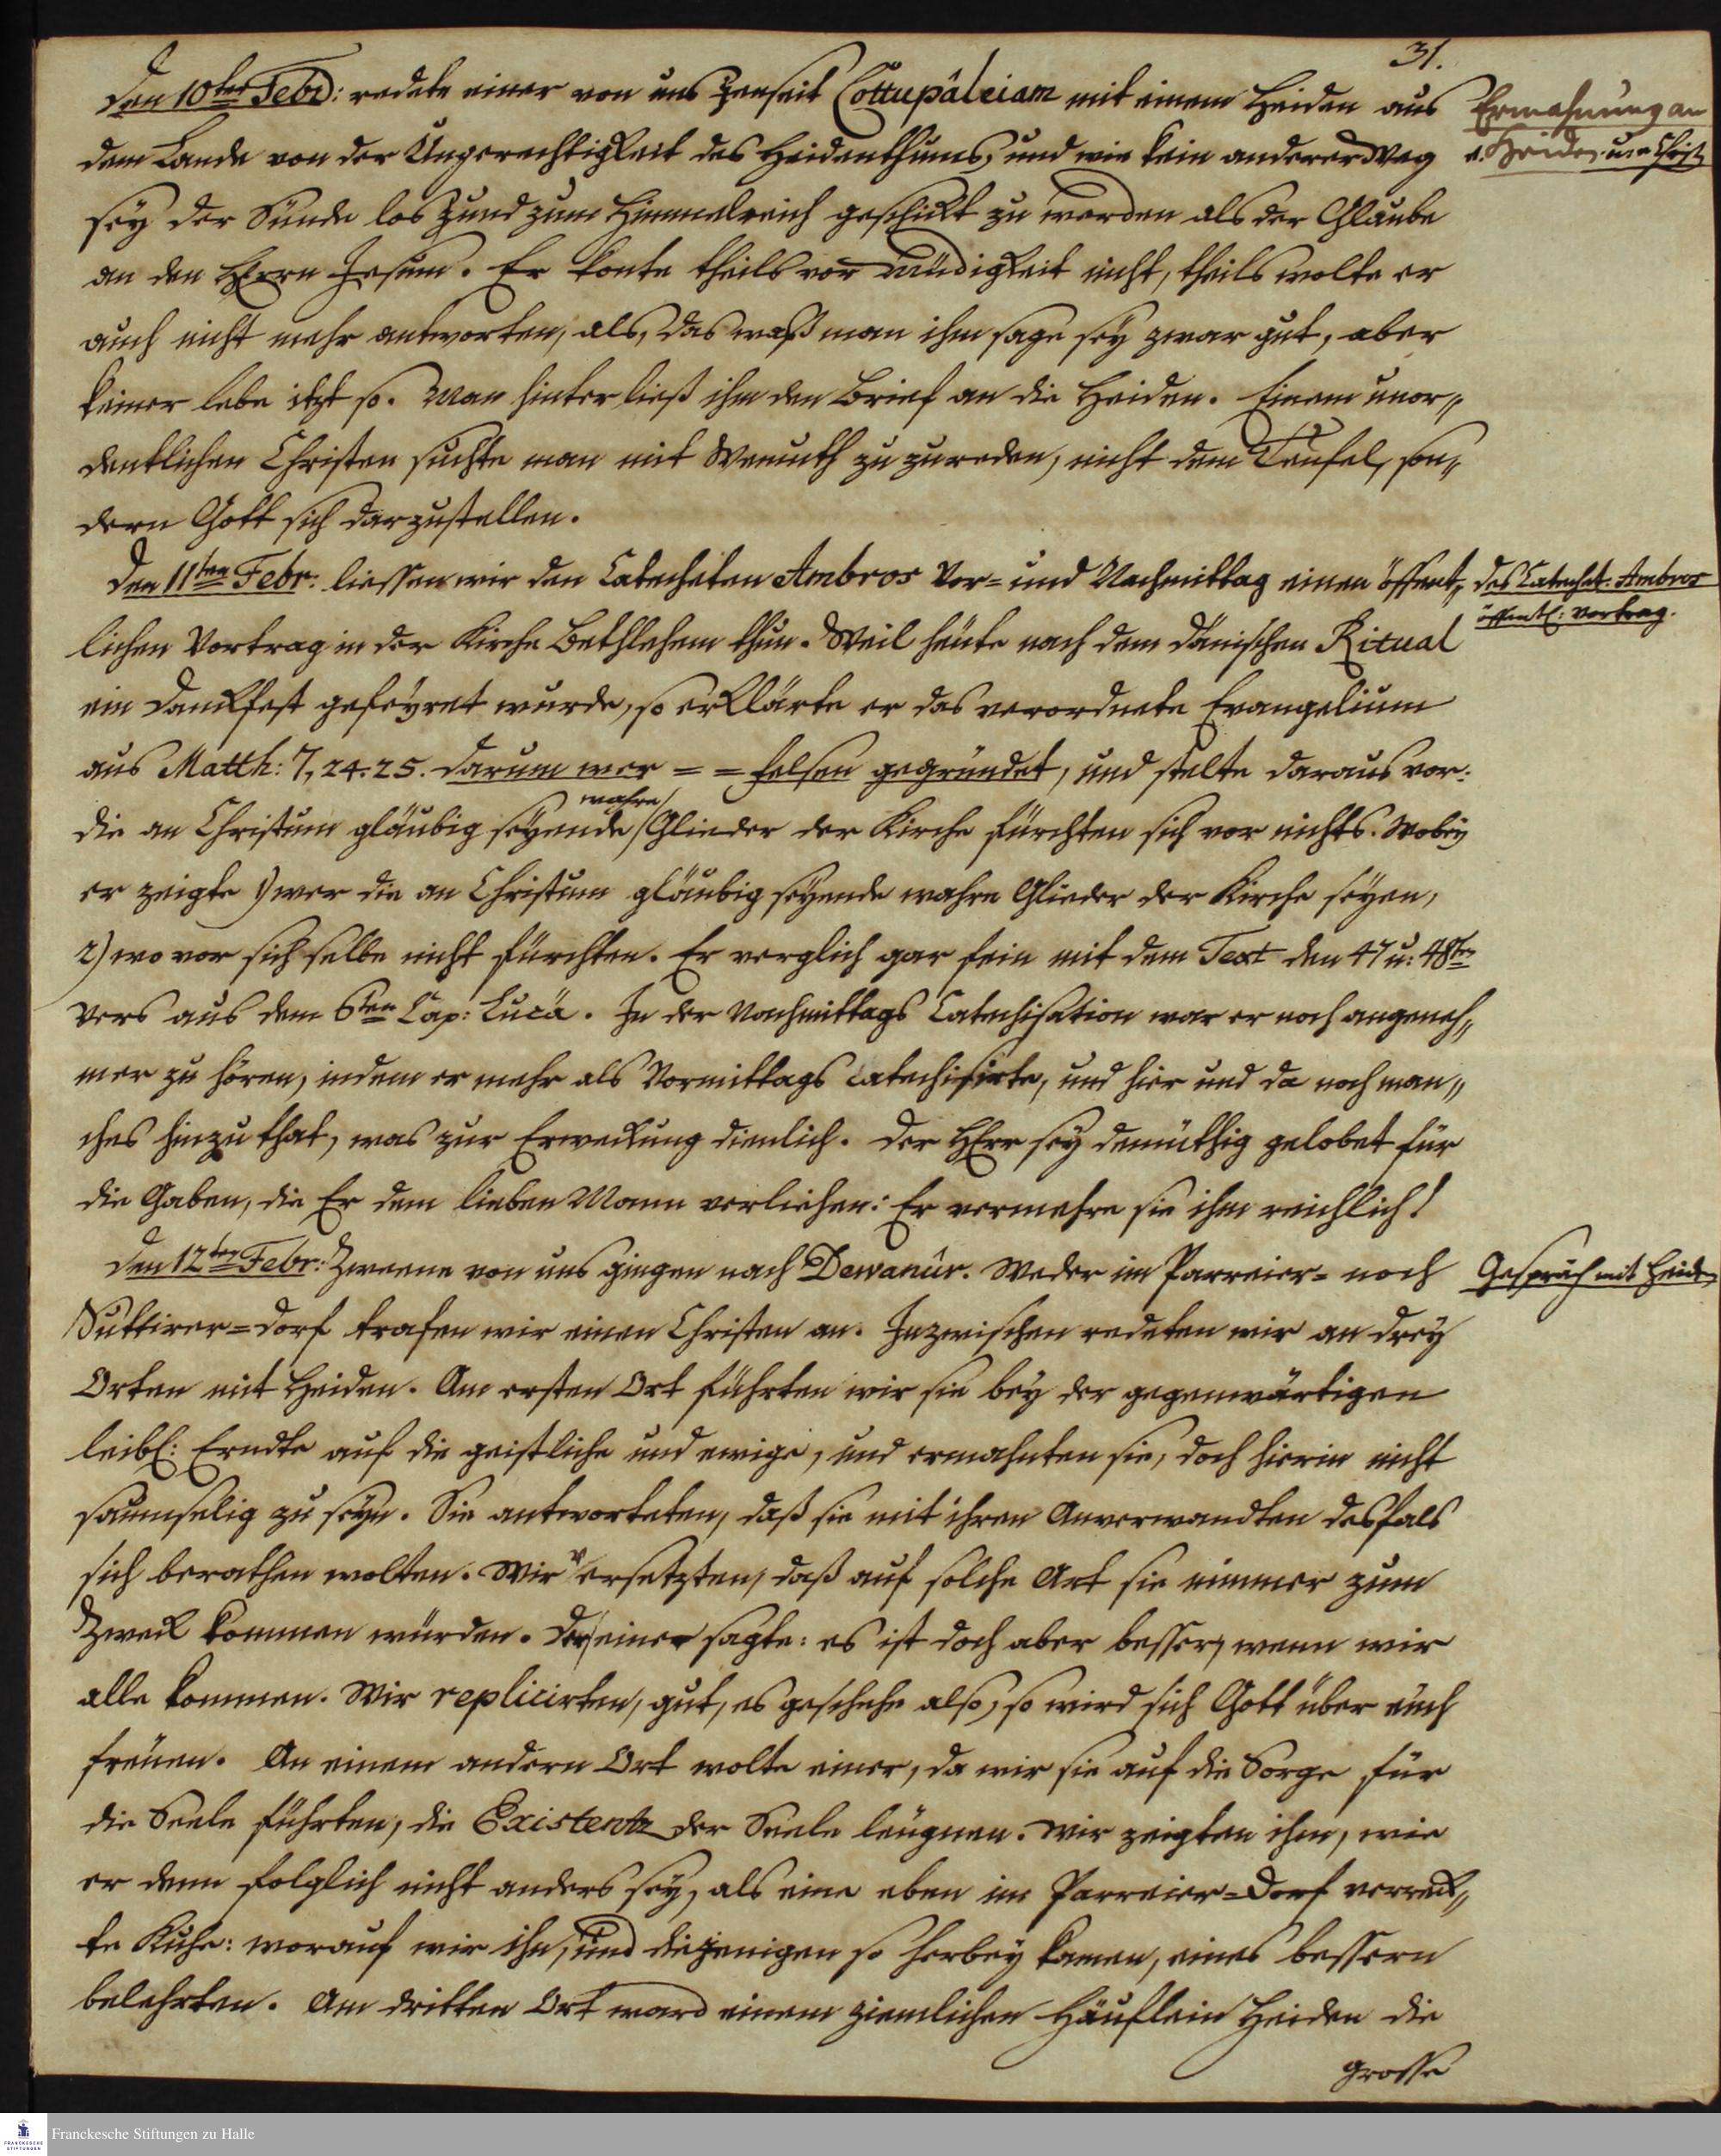 31.
Den 10ten Febr: redete einer von uns jenseit Cottupâleiam mit einem Heiden aus
Ermahnung an
dem Lande von der Ungerechtigkeit des Heidenthums, und wie kein anderer Weg
e. Heiden u. e. Christ
sey der Sünde los und zum Himmelreich geschickt zu werden als der Glaube
an den HErrn Jesum. Er konte theils vor Müdigkeit nicht, theils wolte er
auch nicht mehr antworten, als, das waß man ihm sage sey zwar gut, aber
keiner lebe itzt so. Man hinterließ ihm den Brief an die Heiden. Einem unor„
dentlichen Christen suchte man mit Wemuth zu zureden, nicht dem Teufel, son„
dern Gott sich darzustellen.
Den 11ten Febr: liessen wir den Catecheten Ambros Vor= und Nachmittag einen öffent„
des Catechet. Ambros
öffentl: Vortrag.
lichen Vortrag in der Kirche Bethlehem thun. Weil heute nach dem dänischen Ritual
ein Dankfest gefeyret wurde, so erklärte er das verordnete Evangelium
aus Matth: 7, 24.25. Darum wer = = Felsen gegründet, und stelte daraus vor:
wahre
die an Christum gläubig seyende Glieder der Kirche fürchten sich vor nichts. Wobey
er zeigte 1) wer die an Christum gläubig seyende wahre Glieder der Kirche seyen,
2) wo vor sich selbe nicht fürchten. Er verglich gar fein mit dem Text den 47 u: 48ten
Vers aus dem 6ten Cap: Lucä. In der Nachmittags Catechisation war er noch angeneh„
mer zu hören, indem er mehr als Vormittags catechisirte, und hier und da noch man„
ches hinzu that, was zur Erweckung dienlich. Der HErr sey demüthig gelobet für
die Gaben, die Er dem lieben Mann verliehen: Er vermehre sie ihm reichlich!
Den 12ten Febr: Zweene von uns gingen nach Dewanûr. Weder im Parreier= noch
Gespräch mit Heiden
Suttirer=Dorf trafen wir einen Christen an. Inzwischen redeten wir an drey
Orten mit Heiden. Am ersten Ort führten wir sie bey der gegenwärtigen
leibl: Erndte auf die geistliche und ewige, und ermahnten sie, doch hierin nicht
saumselig zu seyn. Sie antworteten, daß sie mit ihren Anverwandten desfals
sich berathen wolten. Wir versetzten, daß auf solche Art sie nimmer zum
Zweck kommen würden. Der eine sagte: es ist doch aber besser, wenn wir
alle kommen. Wir replicirten, gut, es geschehe also, so wird sich Gott über euch
freuen. An einem andern Ort wolte einer, da wir sie auf die Sorge für
die Seele führten, die Existentz der Seele leugnen. Wir zeigten ihm, wie
er denn folglich nicht anders sey, als eine eben im Parreier=Dorf verreck„
te Kuhe: worauf wir ihn, und diejenigen so herbey kamen, eines bessern
belehrten. Am dritten Ort ward einem ziemlichen Häuflein Heiden die
grosse
FRANCKESCHE STIFTUNGEN
Franckesche Stiftungen zu Halle